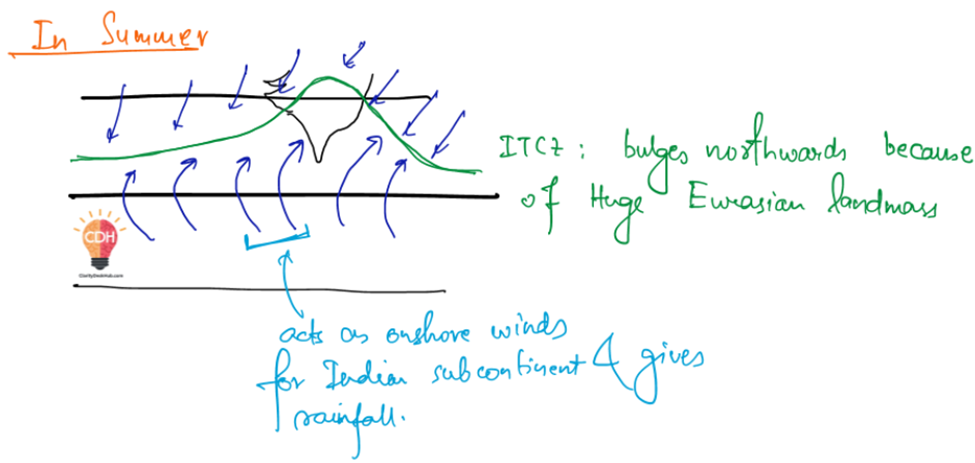 In Summer
ITCZ : bulges northwards because
of Huge Eurasian landmass
CDH
ClarityDeskHub.com
acts as onshore winds
for Indian subcontinent & gives
rainfall.